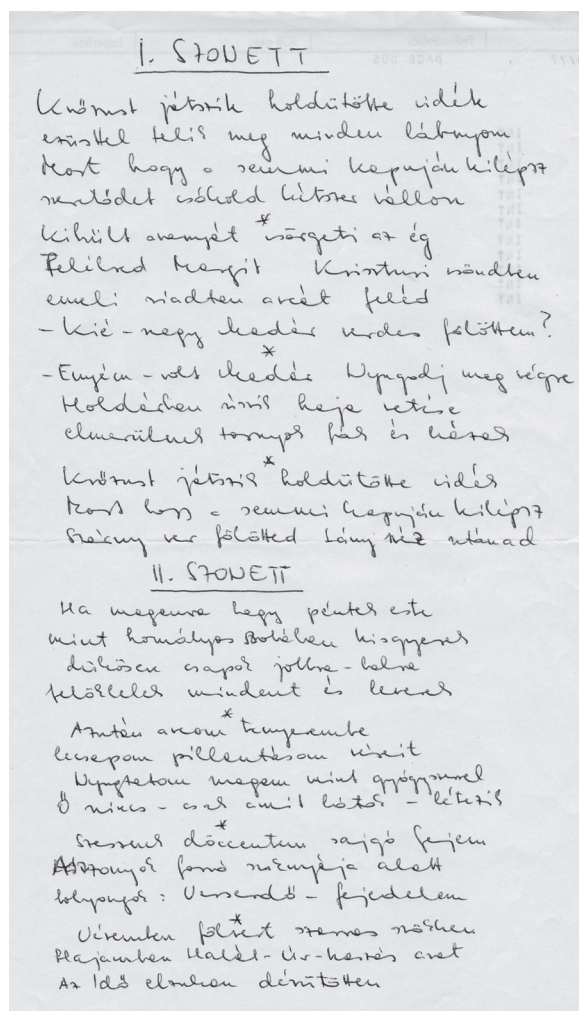 I. SZONETT
Krőzust játszik holdütötte vidék
ezüsttel telik meg minden lábnyom
Most hogy a semmi kapuján kilépsz
csókold kétszer vállon
*
Kihült aranyát csörgeti az ég
Felébred Margit Krisztusi csöndben
emeli riadtan arcát feléd
- Kié - nagy madár verdes fölöttem?
*
- Enyém - volt madár Nyugodj meg végre
Holdárban úszik haja
elmerülnek tornyok fák és házak
*
Krőzust játszik holdütötte vidék
Most hogy a semmi kapuján kilépsz
Szárny ver fölötted Lány néz utánad
II. SZONETT
Ha magamra hagy péntek este
mint homályos szobában kisgyerek
dühösen csapok jobbra-balra
felöklelek mindent és leverek
*
Azután arcom tenyerembe
lecsapom pillantásom késeit
Nyugtatom magam mint gyógyszerrel
Ő nincs - csak amit látok - létezik
*
döccentem sajgó fejem
Asszonyok forró szoknyája alatt
bolyongok: Verserdő - fejedelem
*
Véremben fölsírt szarvas szökken
Hajamban Halál-Úr-
Az Idő derűtötten